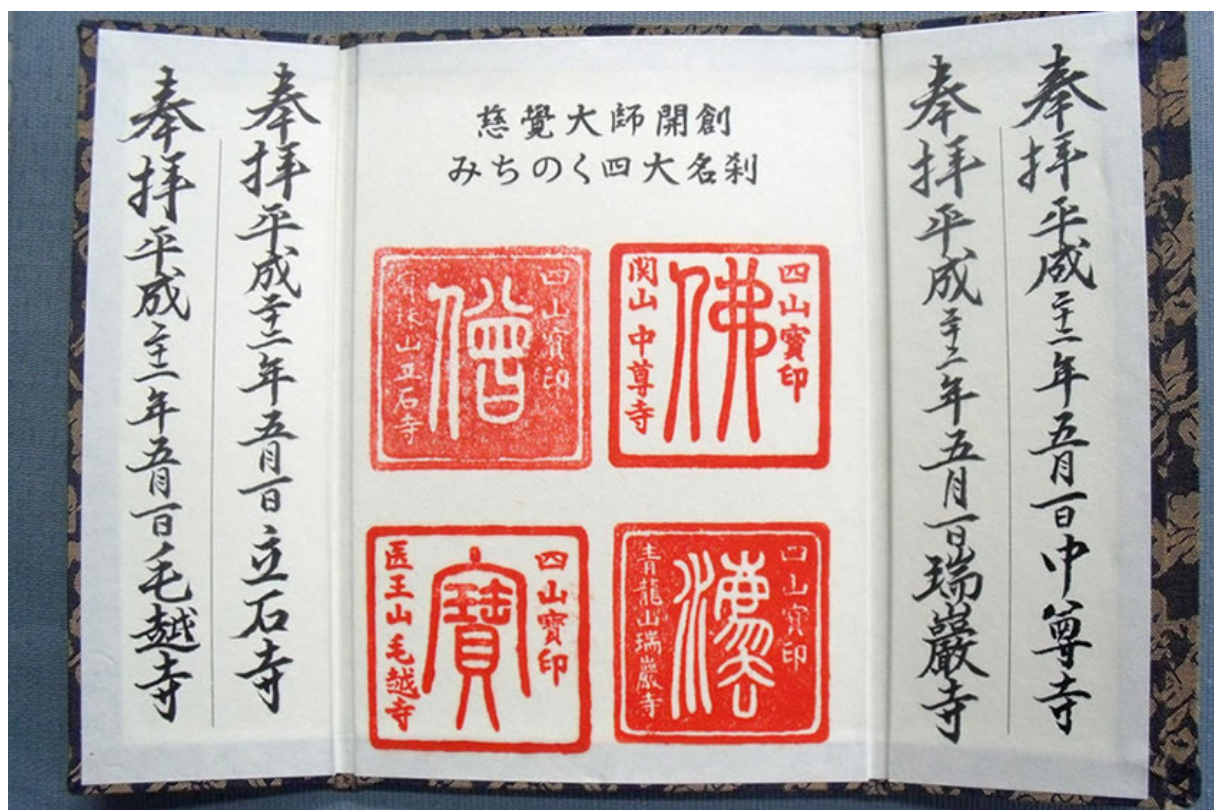 奉拝平成二十二年五月一日中尊寺
奉拝平成二十二年五月一日瑞巌寺
慈覺大師開創
みちのく四大名刹
四山寶印
佛
関山中尊寺
四山寶印
僧
宝珠山立石寺
四山寶印
灋
青龍山瑞巌寺
四山寶印
寶
医王山毛越寺
奉拝平成二十二年五月一日立石寺
奉拝平成二十二年五月一日毛越寺